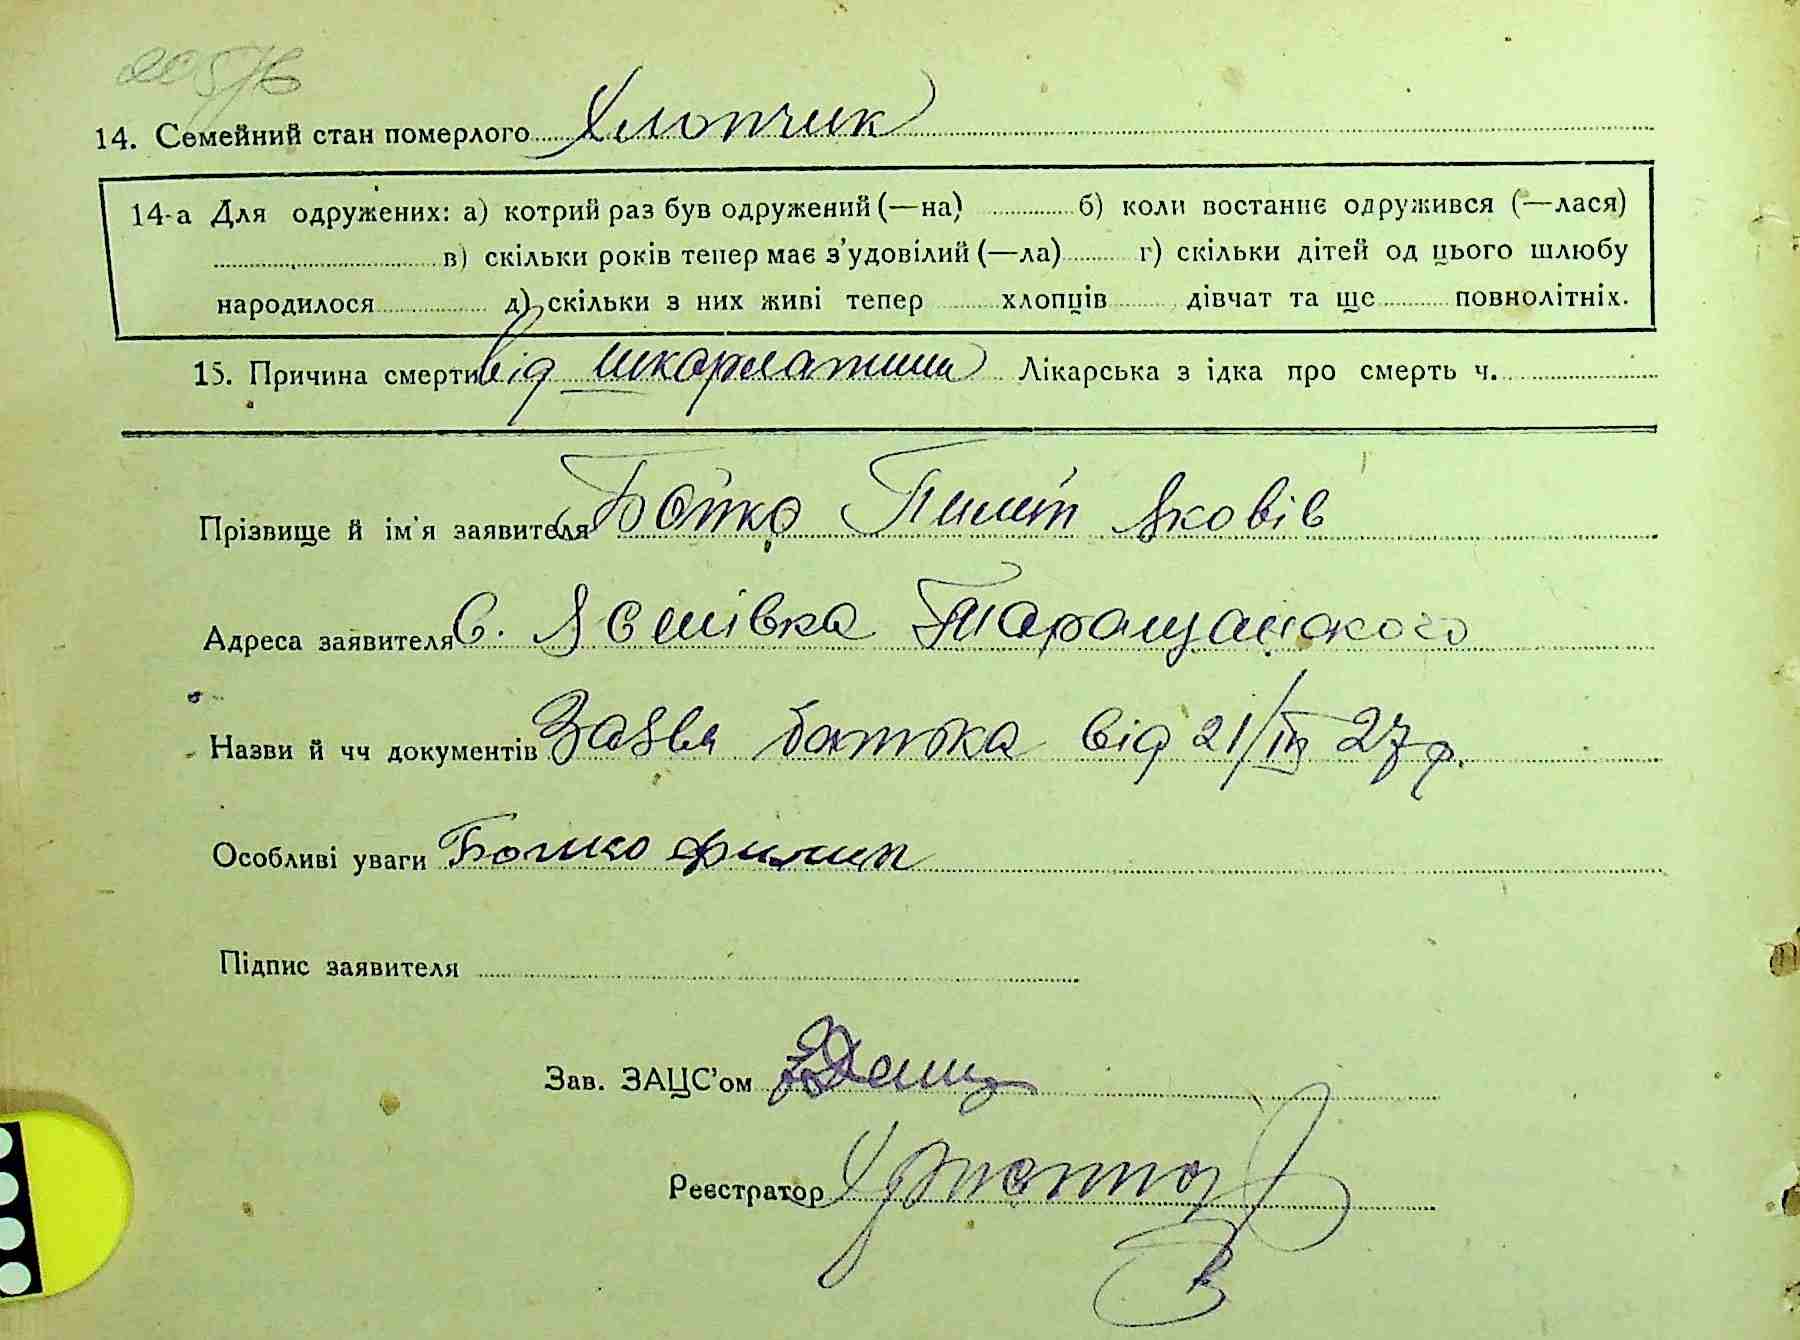 14. Семейний стан померлого Хлопчик
14-а Для одружених: а) котрий раз був одружений (—на) б) коли востаннє одружився (—лася)
в) скільки років тепер має з’удовілий (—ла) г) скільки дітей од цього шлюбу
народилося д) скільки з них живі тепер хлопців дівчат та ще повнолітніх.
15. Причина смерти від шкарлатини Лікарська з ідка про смерть ч.
Прізвище й ім’я заявителя Бойко Пилип Яковів
Адреса заявителя С. Лісівка Таращанского
Назви й чч документів Заява батька від 21/III 27 р.
Особливі уваги Бойко Филип
Підпис заявителя
Зав. ЗАЦС’ом
Реєстратор